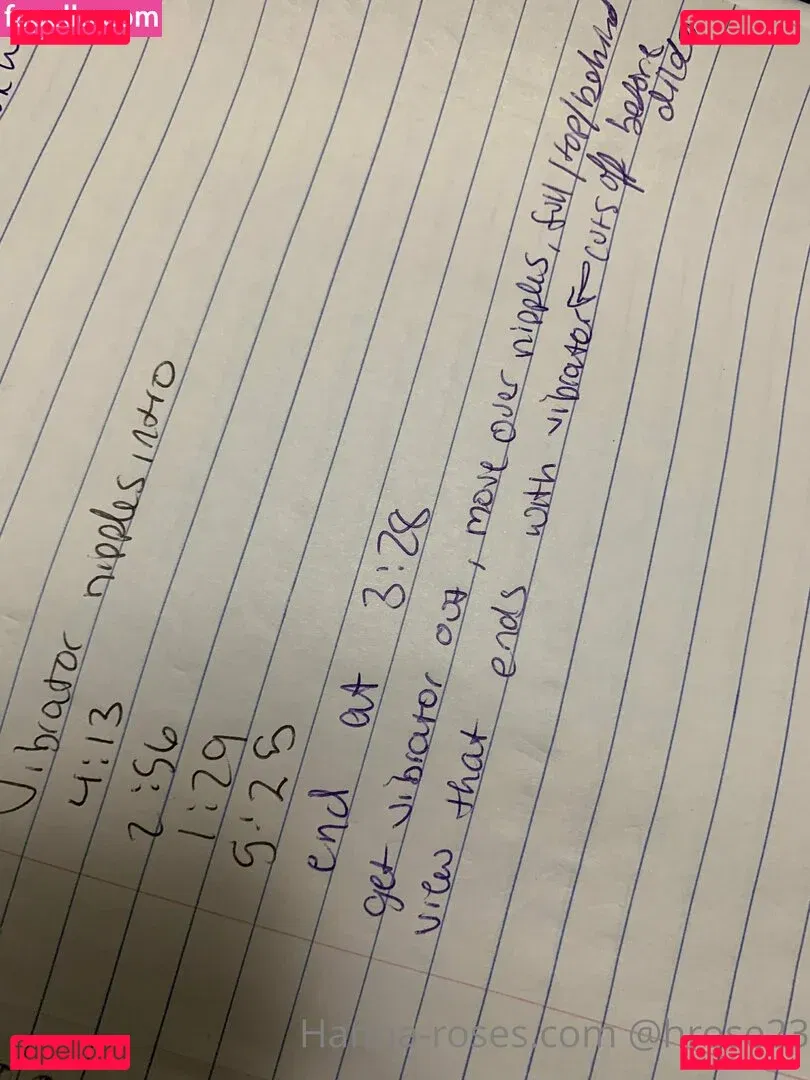 fapello.ru
fapello.ru
Vibrator nipples intro
4:13
2:56
1:29
5:25
end at 3:28
get vibrator out, move over nipples, full/top/behind
view that ends with vibrator ← cuts off before
dildo
Hanna-roses.com @hrose23
fapello.ru
fapello.ru